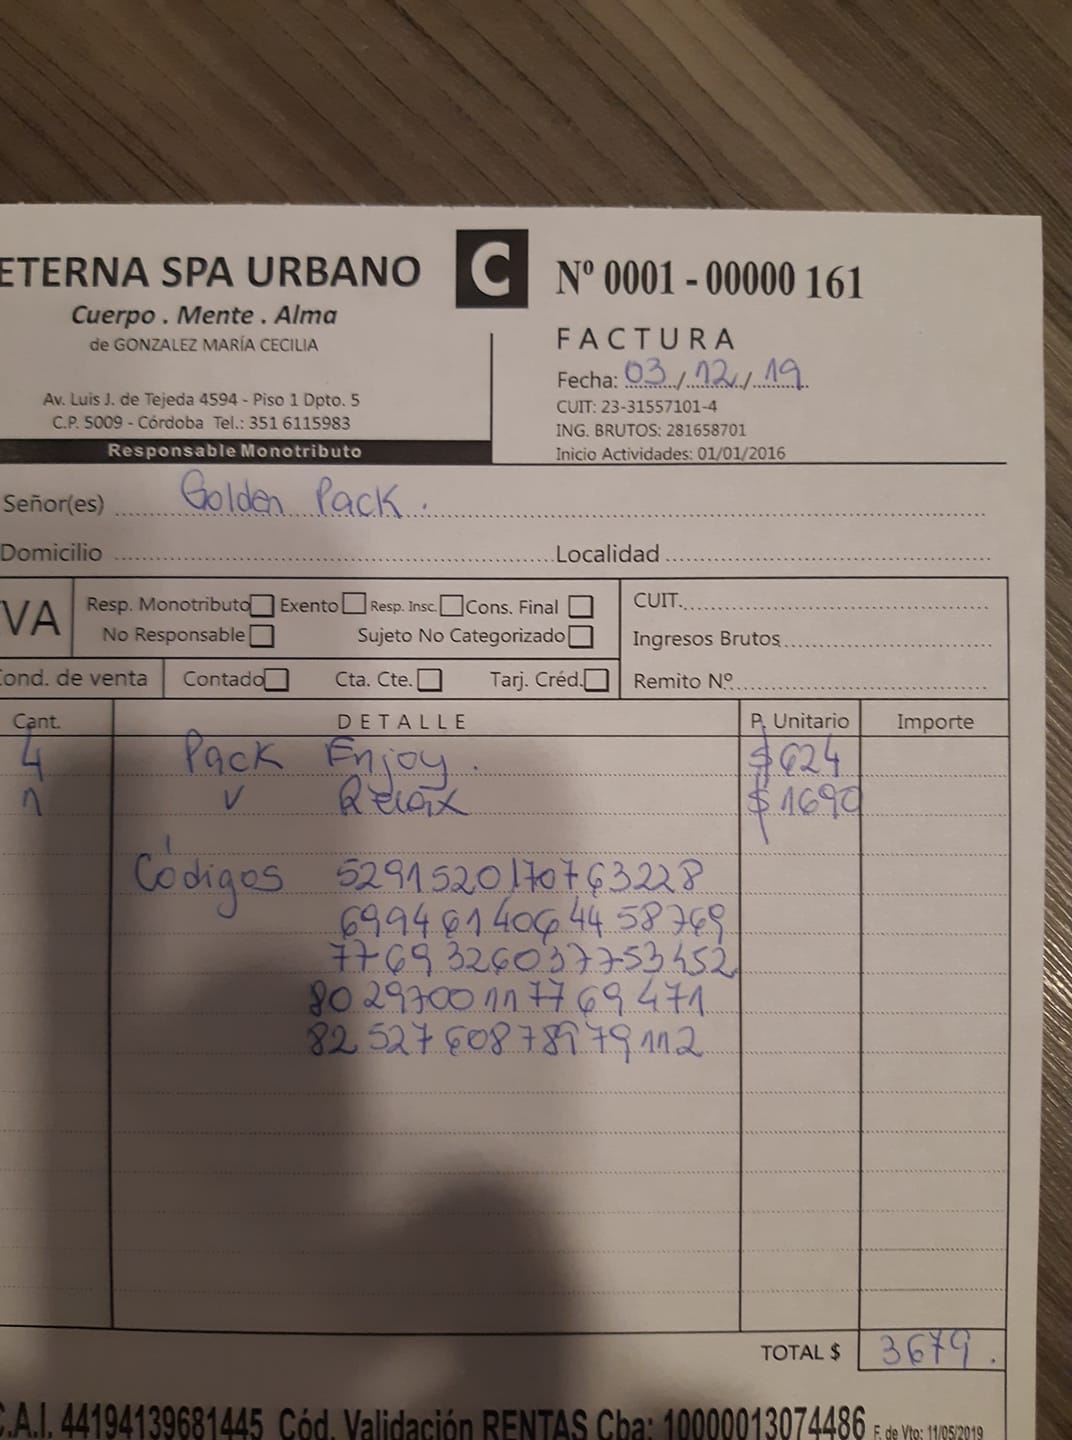 ETERNA SPA URBANO
Cuerpo . Mente . Alma
de GONZALEZ MARÍA CECILIA
Av. Luis J. de Tejeda 4594 - Piso 1 Dpto. 5
C.P. 5009 - Córdoba Tel.: 351 6115983
Responsable Monotributo
C
Nº 0001 - 00000 161
FACTURA
Fecha: 03/12/19
CUIT: 23-31557101-4
ING. BRUTOS: 281658701
Inicio Actividades: 01/01/2016
Señor(es) Golden Pack.
Domicilio Localidad
VA Resp. Monotributo Exento Resp. Insc. Cons. Final
No Responsable Sujeto No Categorizado
CUIT.
Ingresos Brutos
Cond. de venta Contado Cta. Cte. Tarj. Créd.
Remito Nº
Cant. DETALLE P. Unitario Importe
4 Pack Enjoy. $624
1 v Relax $1690
Códigos 5291520170763228
6994614064458769
7769326037753452
8029700117769471
8252760878979112
TOTAL $ 3679.
C.A.I. 44194139681445 Cód. Validación RENTAS Cba: 10000013074486 F. de Vto: 11/05/2019